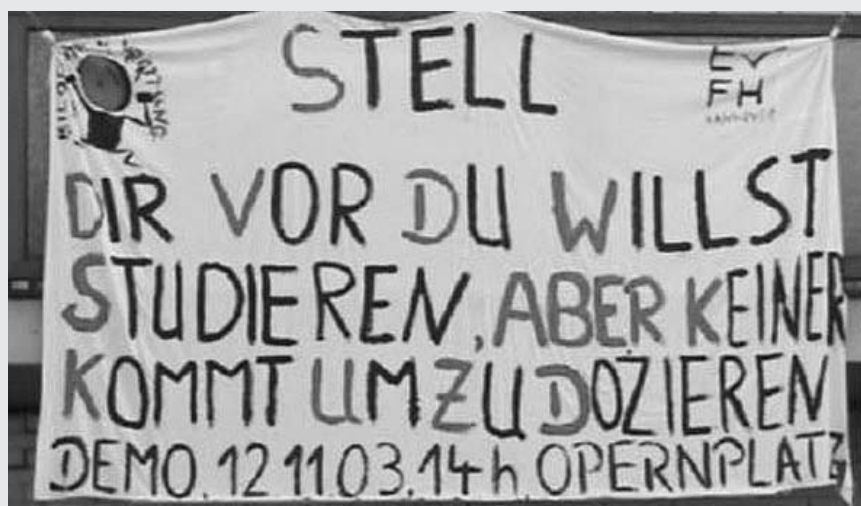 STELL
EV
FH
HANNOVER
DIR VOR DU WILLST
STUDIEREN, ABER KEINER
KOMMT UM ZU DOZIEREN
DEMO. 12 11.03. 14h. OPERNPLATZ